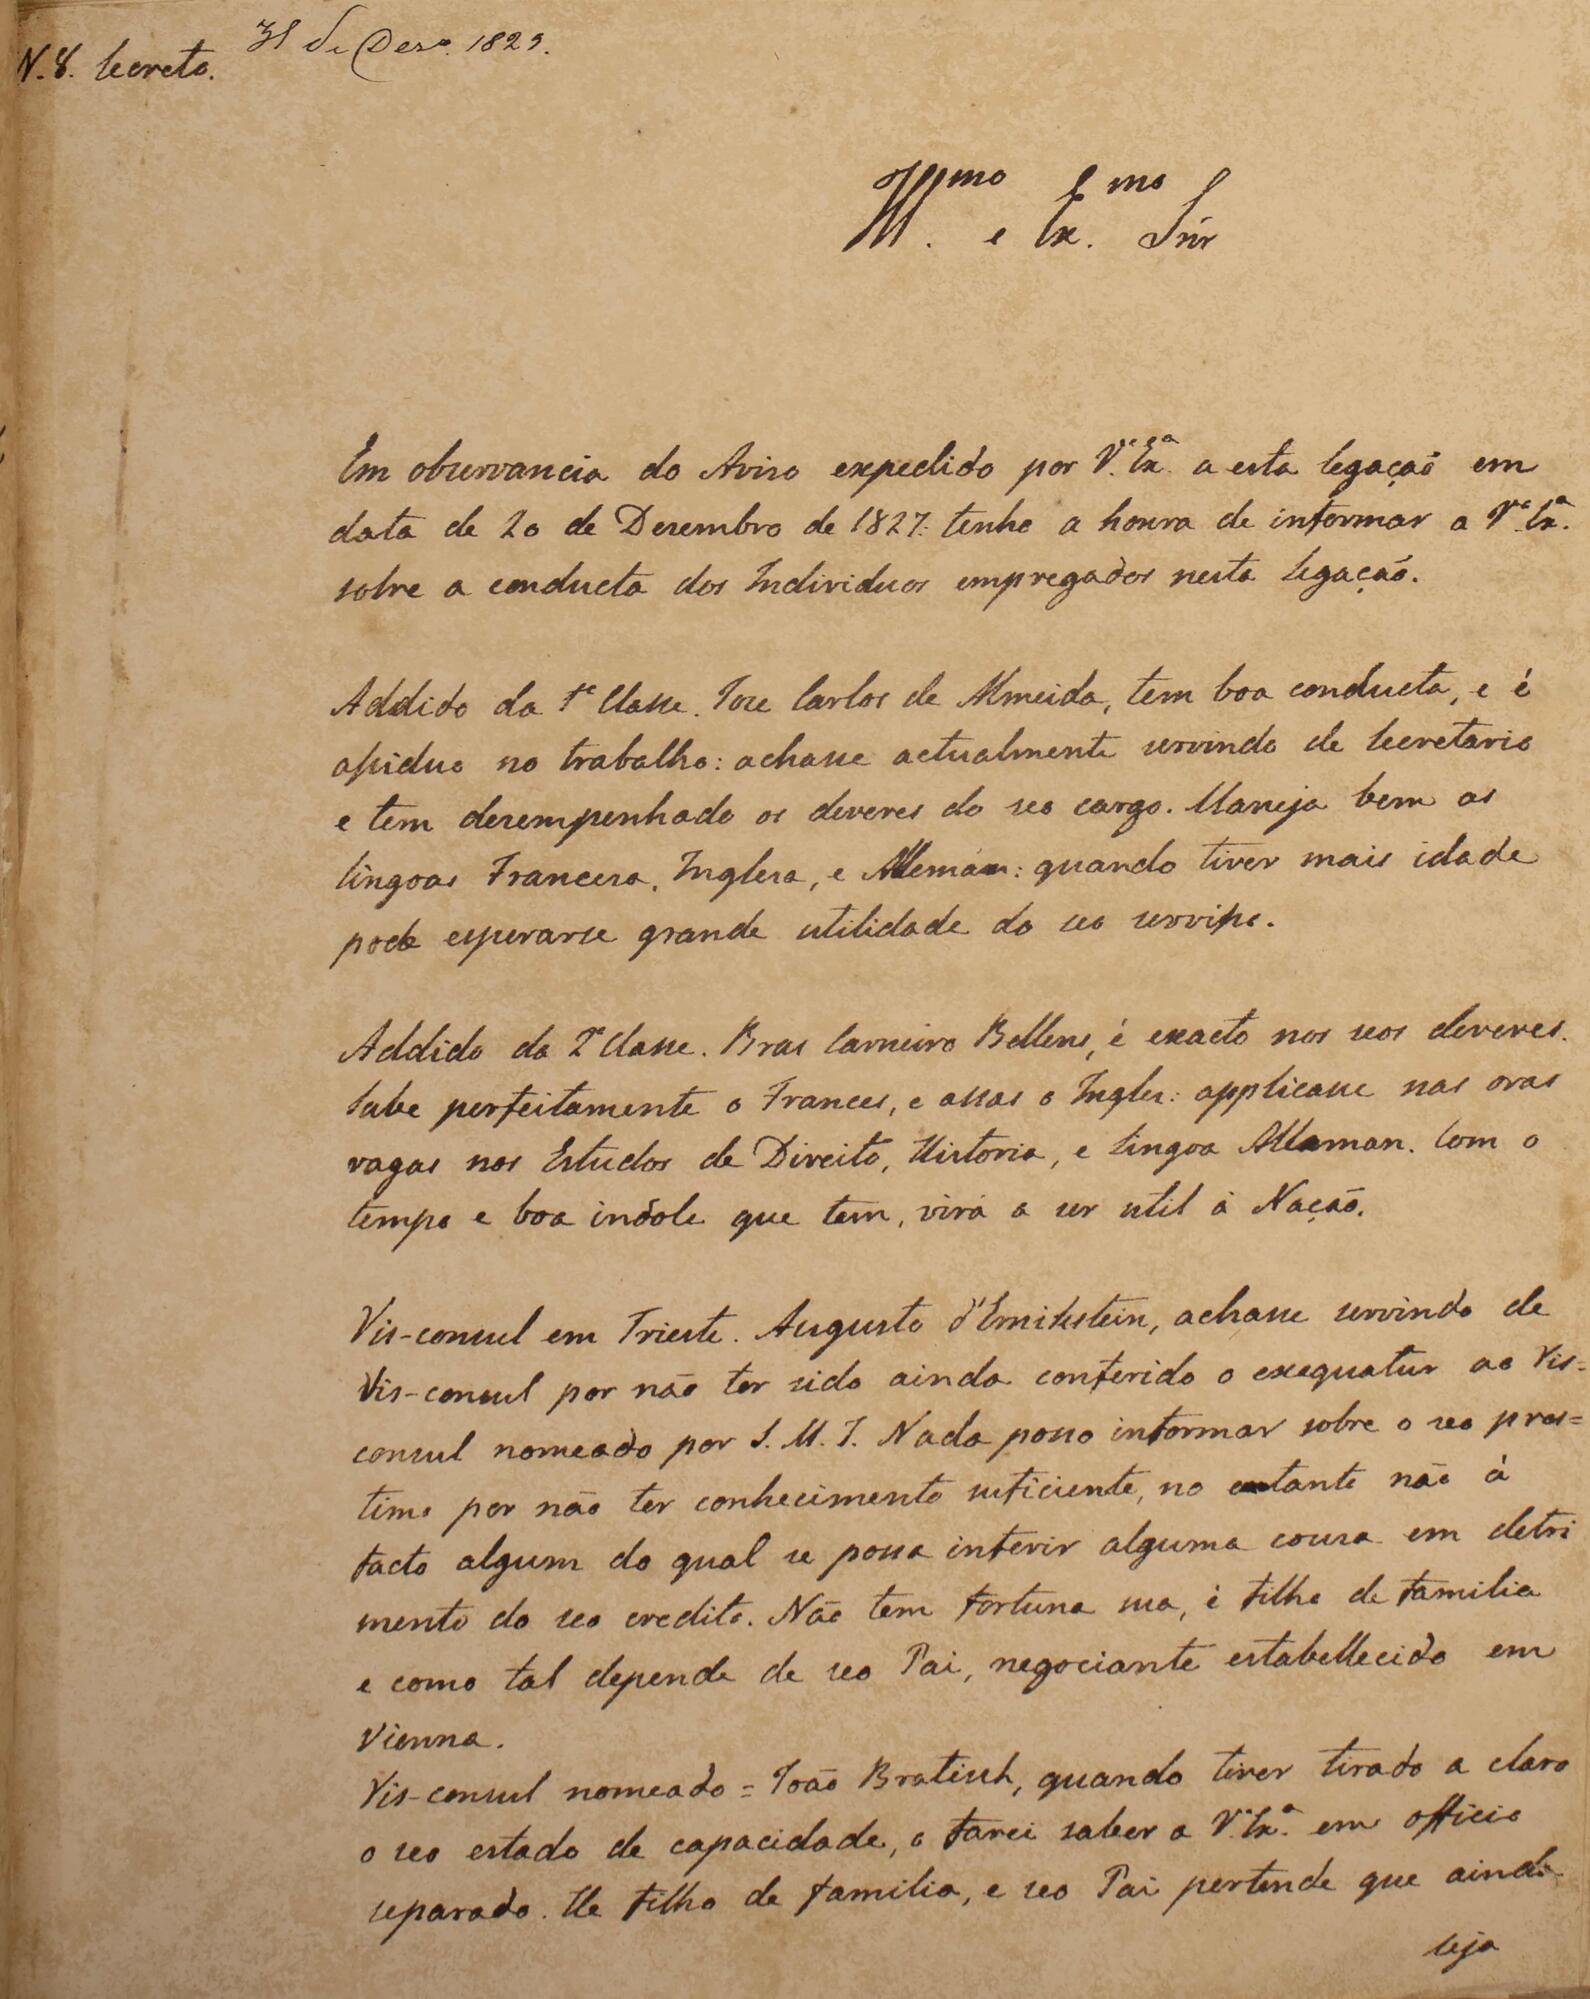 31 de Dezo. 1829.
N. 8. Secreto.
Illmo. e Exmo. Snr
Em observancia do Aviso expedido por V.Exa. a esta Legação em
data de 20 de Dezembro de 1827: tenho a honra de informar a Va.Exa.
sobre a conducta dos Individuos empregados nesta Legação.
Addido da 1a Classe. Joze Carlos de Almeida, tem boa conducta, e é
assiduo no trabalho: achasse actualmente servindo de Secretario
e tem dezempenhado os deveres do seo cargo. Maneja bem as
Lingoas Franceza, Ingleza, e Alleman: quando tiver mais idade
pode esperarse grande utilidade do seo serviço.
Addido da 2a Classe. Bras Carneiro Bellens, é exacto nos seos deveres.
Sabe perfeitamente o Frances, e assas o Ingles: applicasse nas oras
vagas nos Estudos de Direito, Historia, e Lingoa Allaman. Com o
tempo e boa indole que tem, virá a ser util á Nação.
Vis-consul em Trieste. Augusto d'Ernikstein, achasse servindo de
Vis-consul por não ter sido ainda conferido o exequatur ao Vis=
consul nomeado por S. M. I. Nada posso informar sobre o seo pres=
timo por não ter conhecimento suficiente, no entanto não á
facto algum do qual se possa inferir alguma cousa em detri
mento do seo credito. Não tem fortuna sua, é filho de familia
e como tal depende de seo Pai, negociante estabellecido em
Vienna.
Vis-consul nomeado = João Bratish, quando tiver tirado a claro
o seo estado de capacidade, o farei saber a V.Exa. em officio
separado. He filho de familia, e seo Pai pertende que ainda
seja